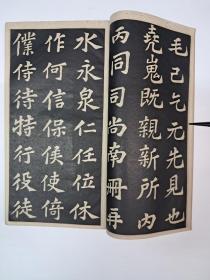 毛己乞元先見也
堯嵬既親新所內
丙同司尚南冊再
水永泉仁任位休
作何信保侯使倚
僕侍待特行役徒